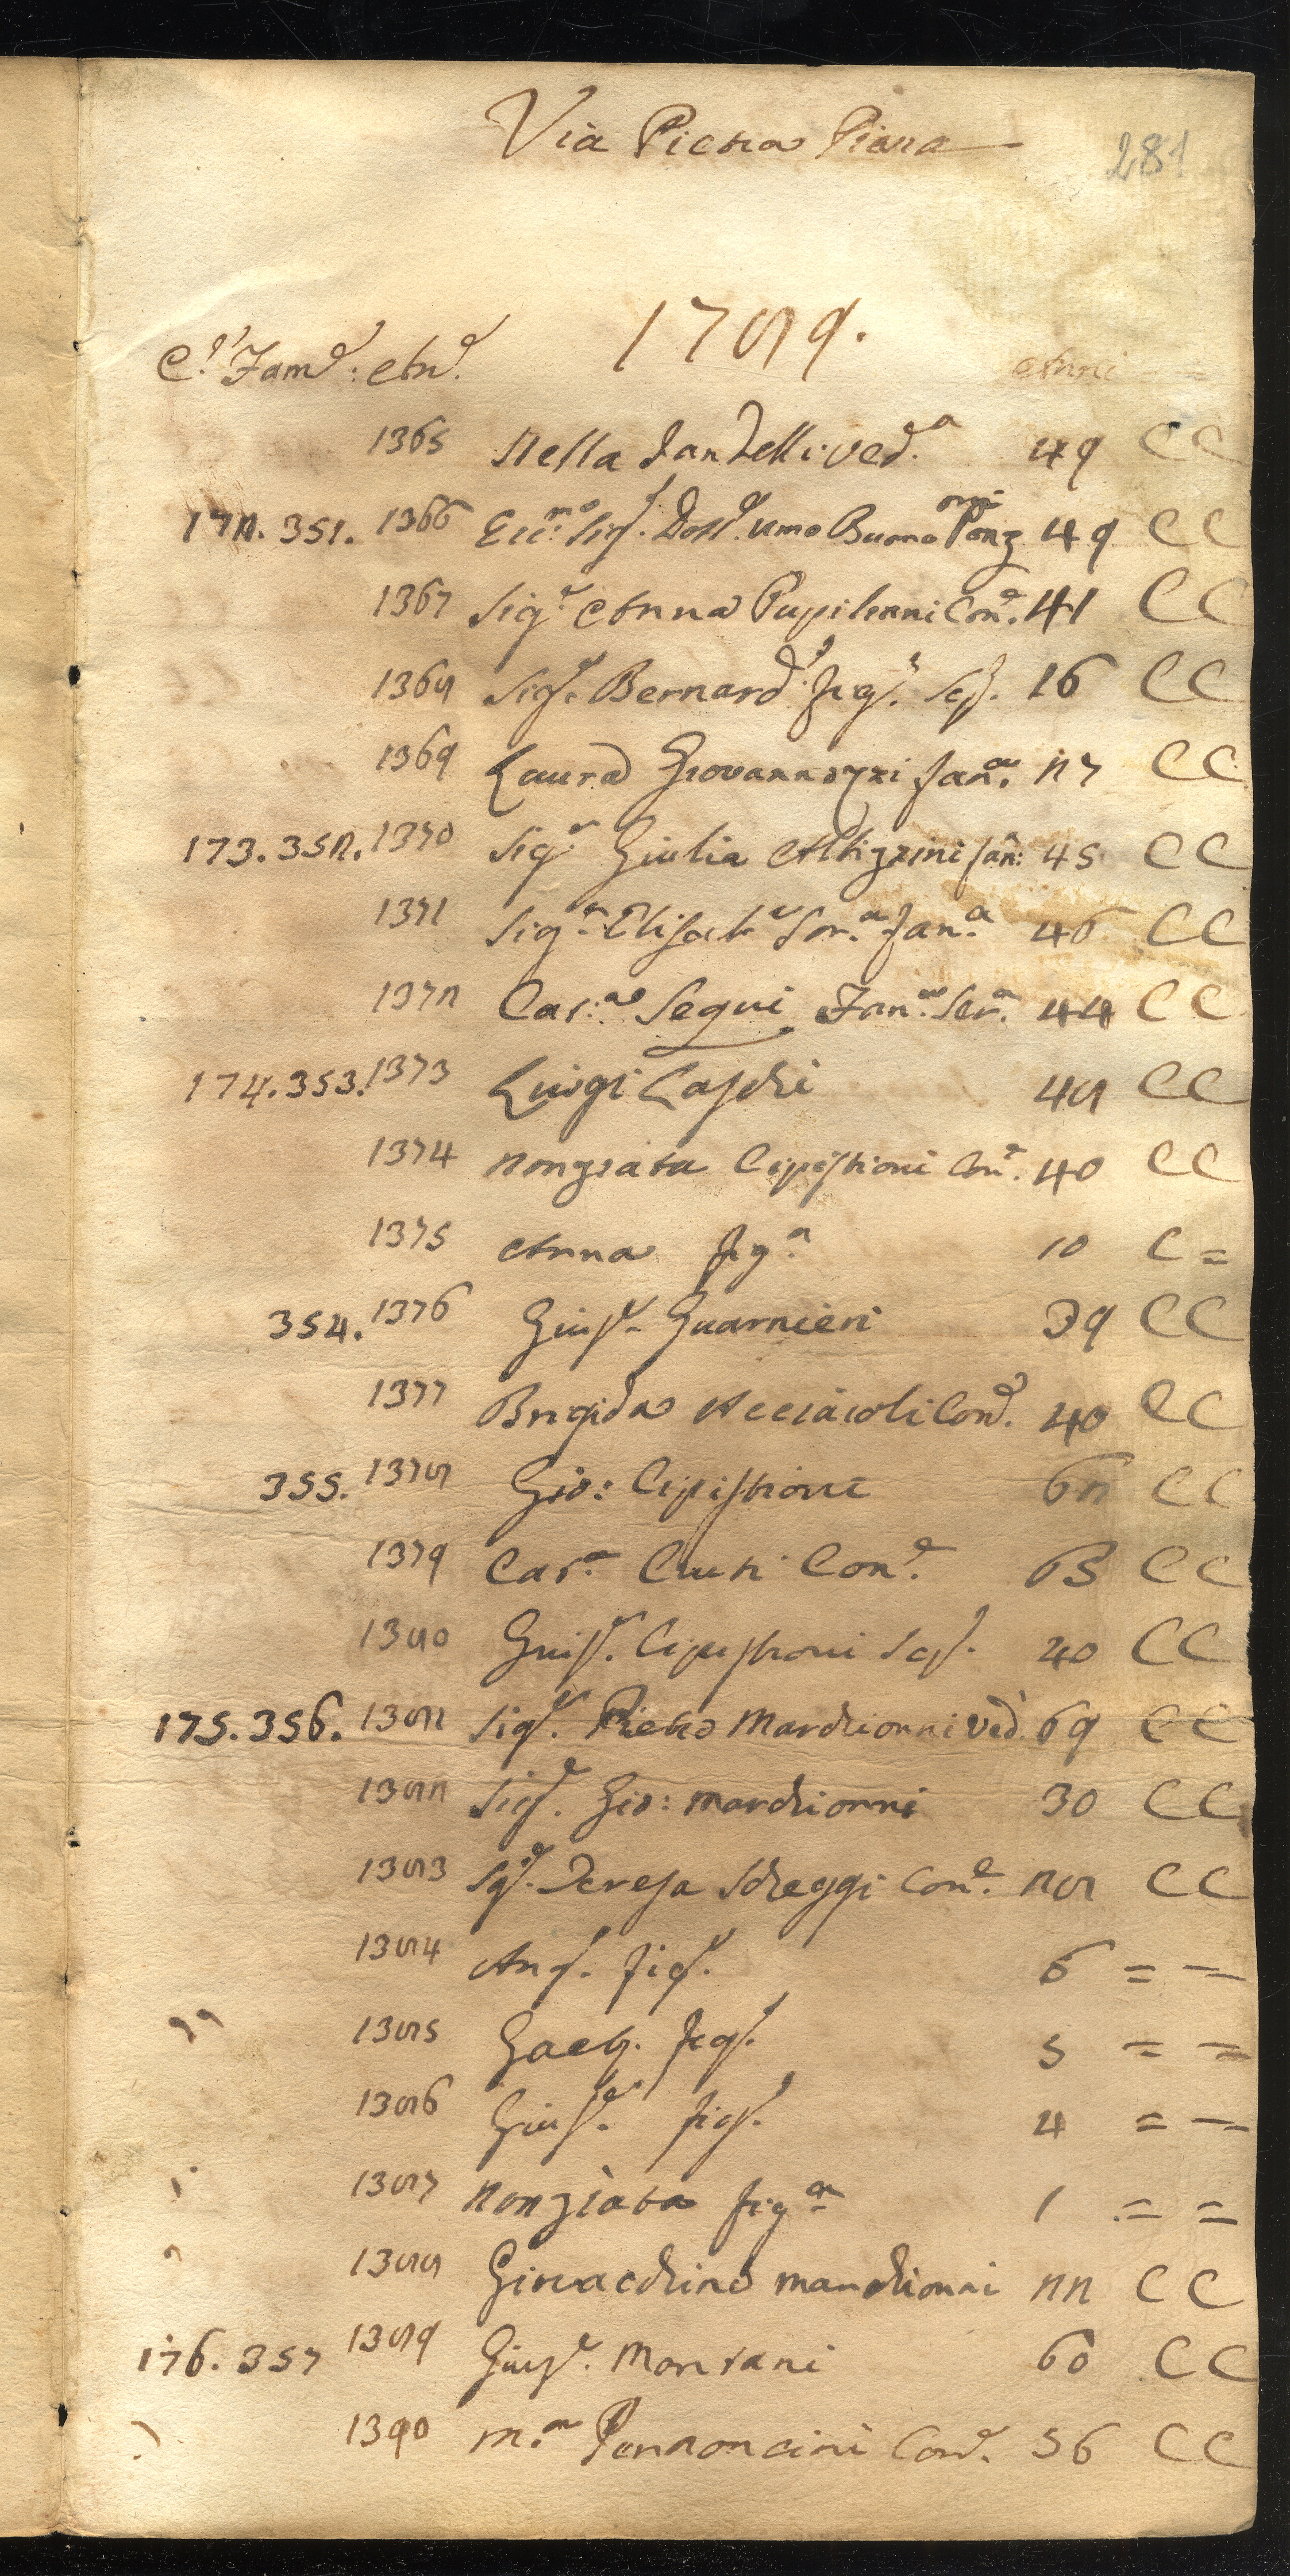 Via Pietra Piana
281
1789.
C.i Fam.e: An.e Anni
1365 Stella Landelli Ved.a 49 C C
172. 351. 1366 Ecc.mo Sig.r Dott.e Umo Buono Ponzoni 49 C C
1367 Sig.a Anna Pupiliani Con.e 41 C C
1368 Sig.e Bernard.o fig.o Scp. 16 C C
1369 Laura Giovannozzi fan.a 27 C C
173. 352. 1370 Sig.a Giulia Albizzini fan: 45 C C
1371 Sig.a Elisab.a Sor.a fan.a 46 C C
1372 Cat.na Segui Fan.a Ser.a 44 C C
174. 353. 1373 Luigi Caschi 48 C C
1374 Nonziata Cipistioni Con.e 40 C C
1375 Anna fig.a 10 C =
354. 1376 Gius.e Guarnieri 39 C C
1377 Brigida Acciaioli Con.e 40 C C
355. 1378 Gio: Cipistioni 62 C C
1379 Cat.a Ciuti Con.e 63 C C
1380 Gius.e Cipistioni Scp. 40 C C
175. 356. 1381 Sig.e Pietro Marchionni Ved. 69 C C
1382 Sig.e Gio: Marchionni 30 C C
1383 Sig.a Teresa Scheggi Con.e 28 C C
1384 Ang.o fig.o 6 = =
1385 Gaet. fig.o 5 = =
1386 Gius.e fig.o 4 = =
1387 Nonziata fig.a 1 = =
1388 Giovacchino Marchionni 22 C C
176. 357 1389 Gius.e Montani 60 C C
1390 M.a Pannoncini Con.e 56 C C